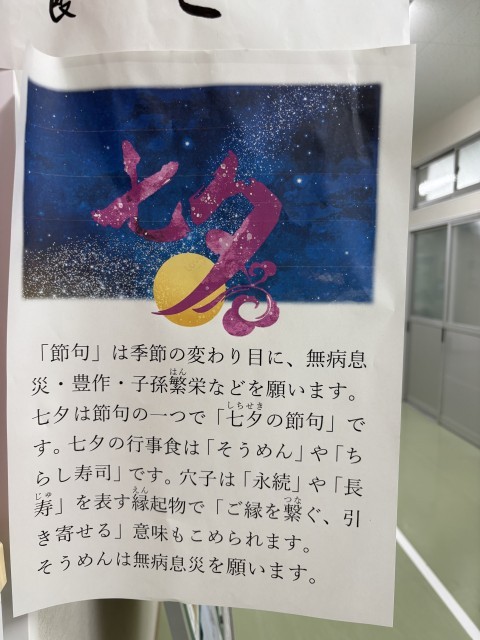 七夕
「節句」は季節の変わり目に、無病息
災・豊作・子孫繁栄などを願います。
七夕は節句の一つで「七夕の節句」で
す。七夕の行事食は「そうめん」や「ち
らし寿司」です。穴子は「永続」や「長
寿」を表す縁起物で「ご縁を繋ぐ、引
き寄せる」意味もこめられます。
そうめんは無病息災を願います。